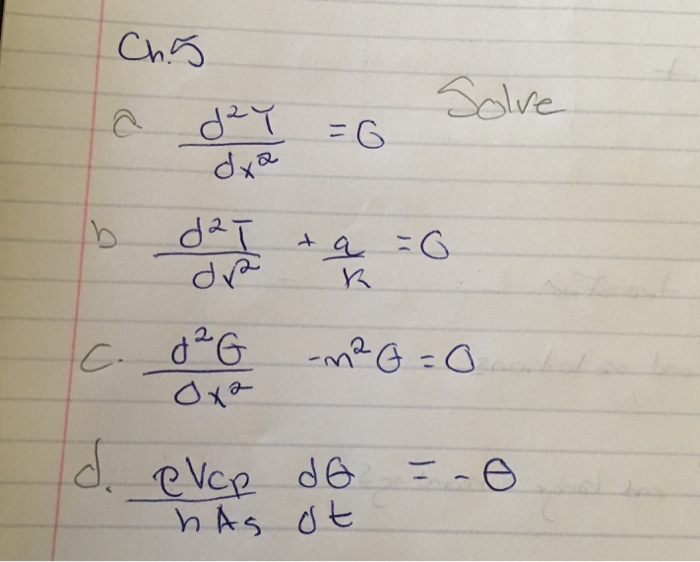 Ch.5
Solve
a d²T/dx² = 0
b d²T/dr² + q/k = 0
c. d²θ/dx² - m²θ = 0
d. ρVcp/hAs dθ/dt = - θ